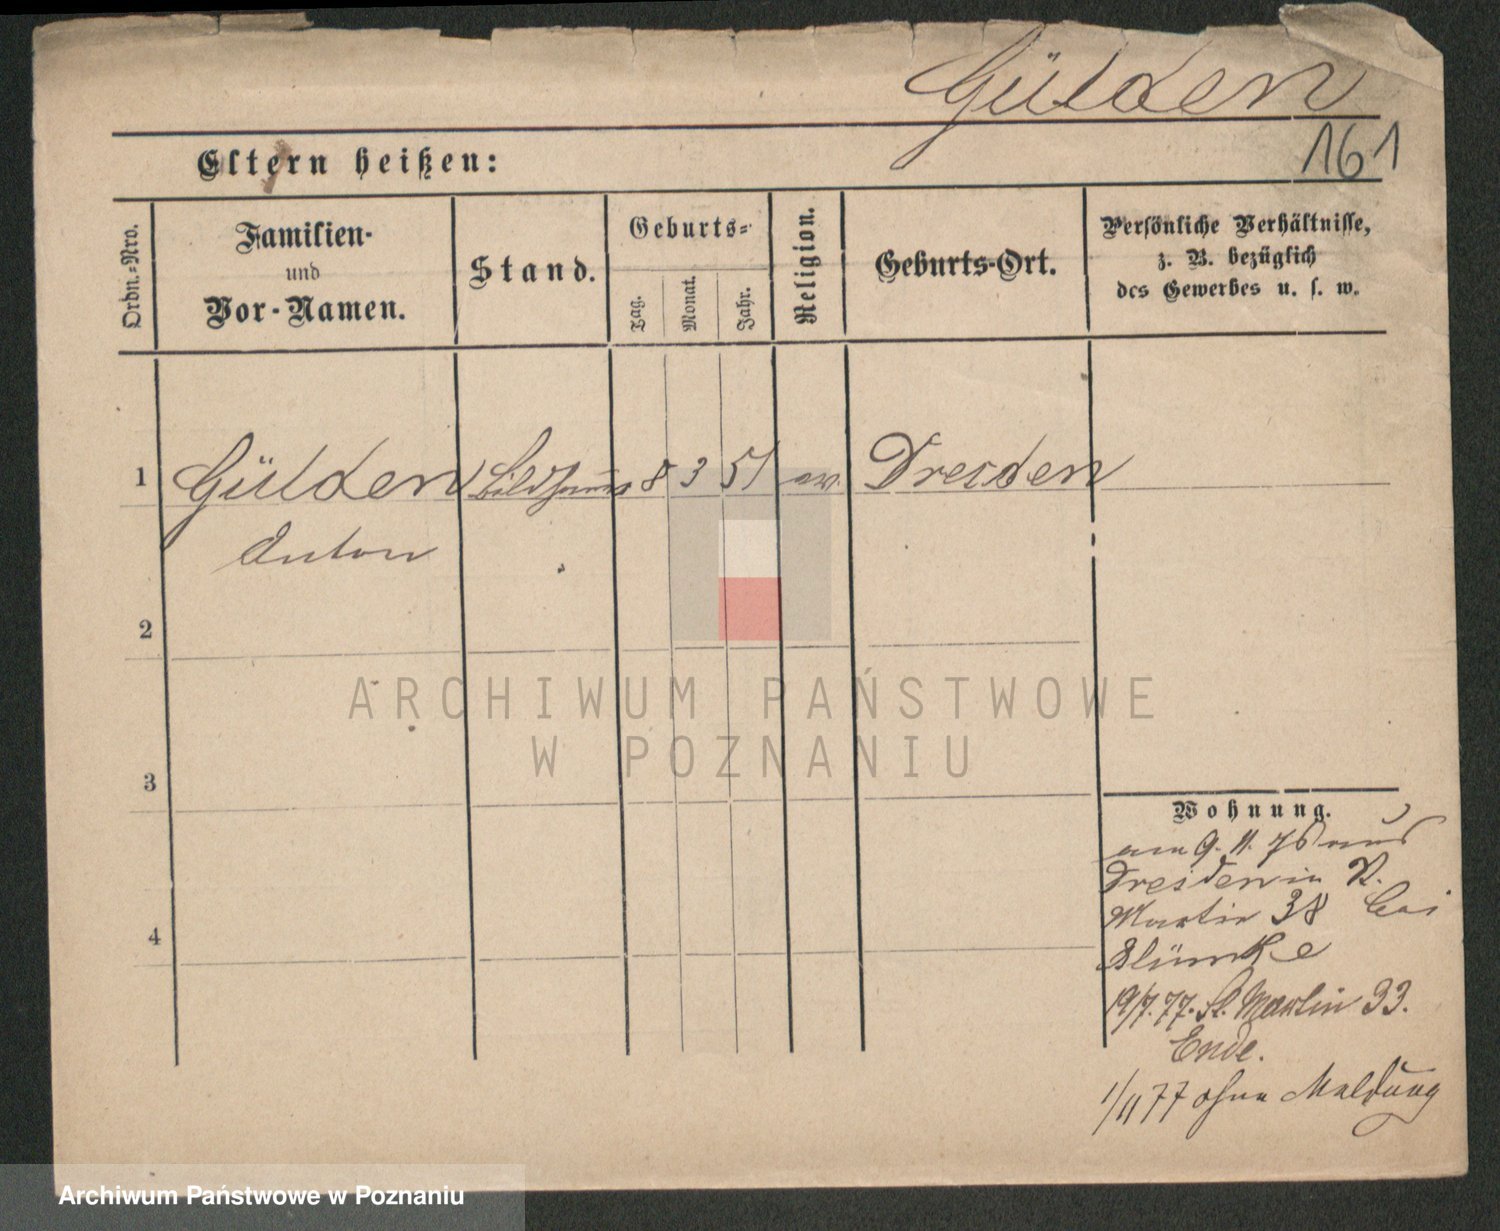 Gülden
161
Eltern heißen:
Ordn.-Nro.
Familien-
und
Vor-Namen.
Stand.
Geburts-
Tag.
Monat.
Jahr.
Religion.
Geburts-Ort.
Persönliche Verhältnisse,
z. B. bezüglich
des Gewerbes u. s. w.
1 Gülden Bildhauer 8 3 51 ev. Dresden
Anton
2
3
4
ARCHIWUM PAŃSTWOWE
W POZNANIU
Wohnung.
am 9. 11. 76 aus
Dresden in
Martin 38 bei
Blümke
19/7. 77. St. Martin 33.
Ende.
1/11 77 ohne Meldung
Archiwum Państwowe w Poznaniu